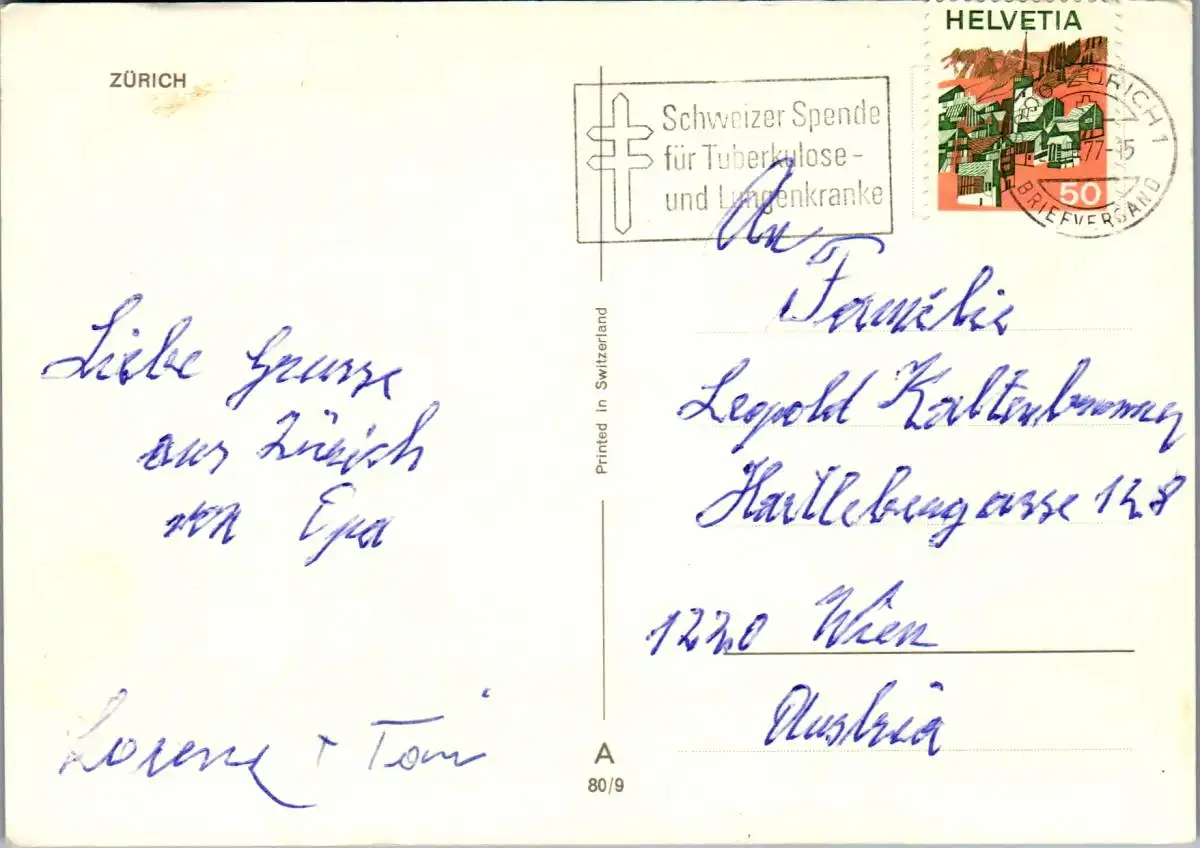 ZÜRICH
HELVETIA
50
ZÜRICH 1
77-15
BRIEFVERSAND
Schweizer Spende
für Tuberkulose-
und Lungenkranke
Liebe Grusse
aus Zürich
von Epa
Lorenz + Toni
Printed in Switzerland
A
80/9
An
Familie
Leopold
1220 Wien
Austria